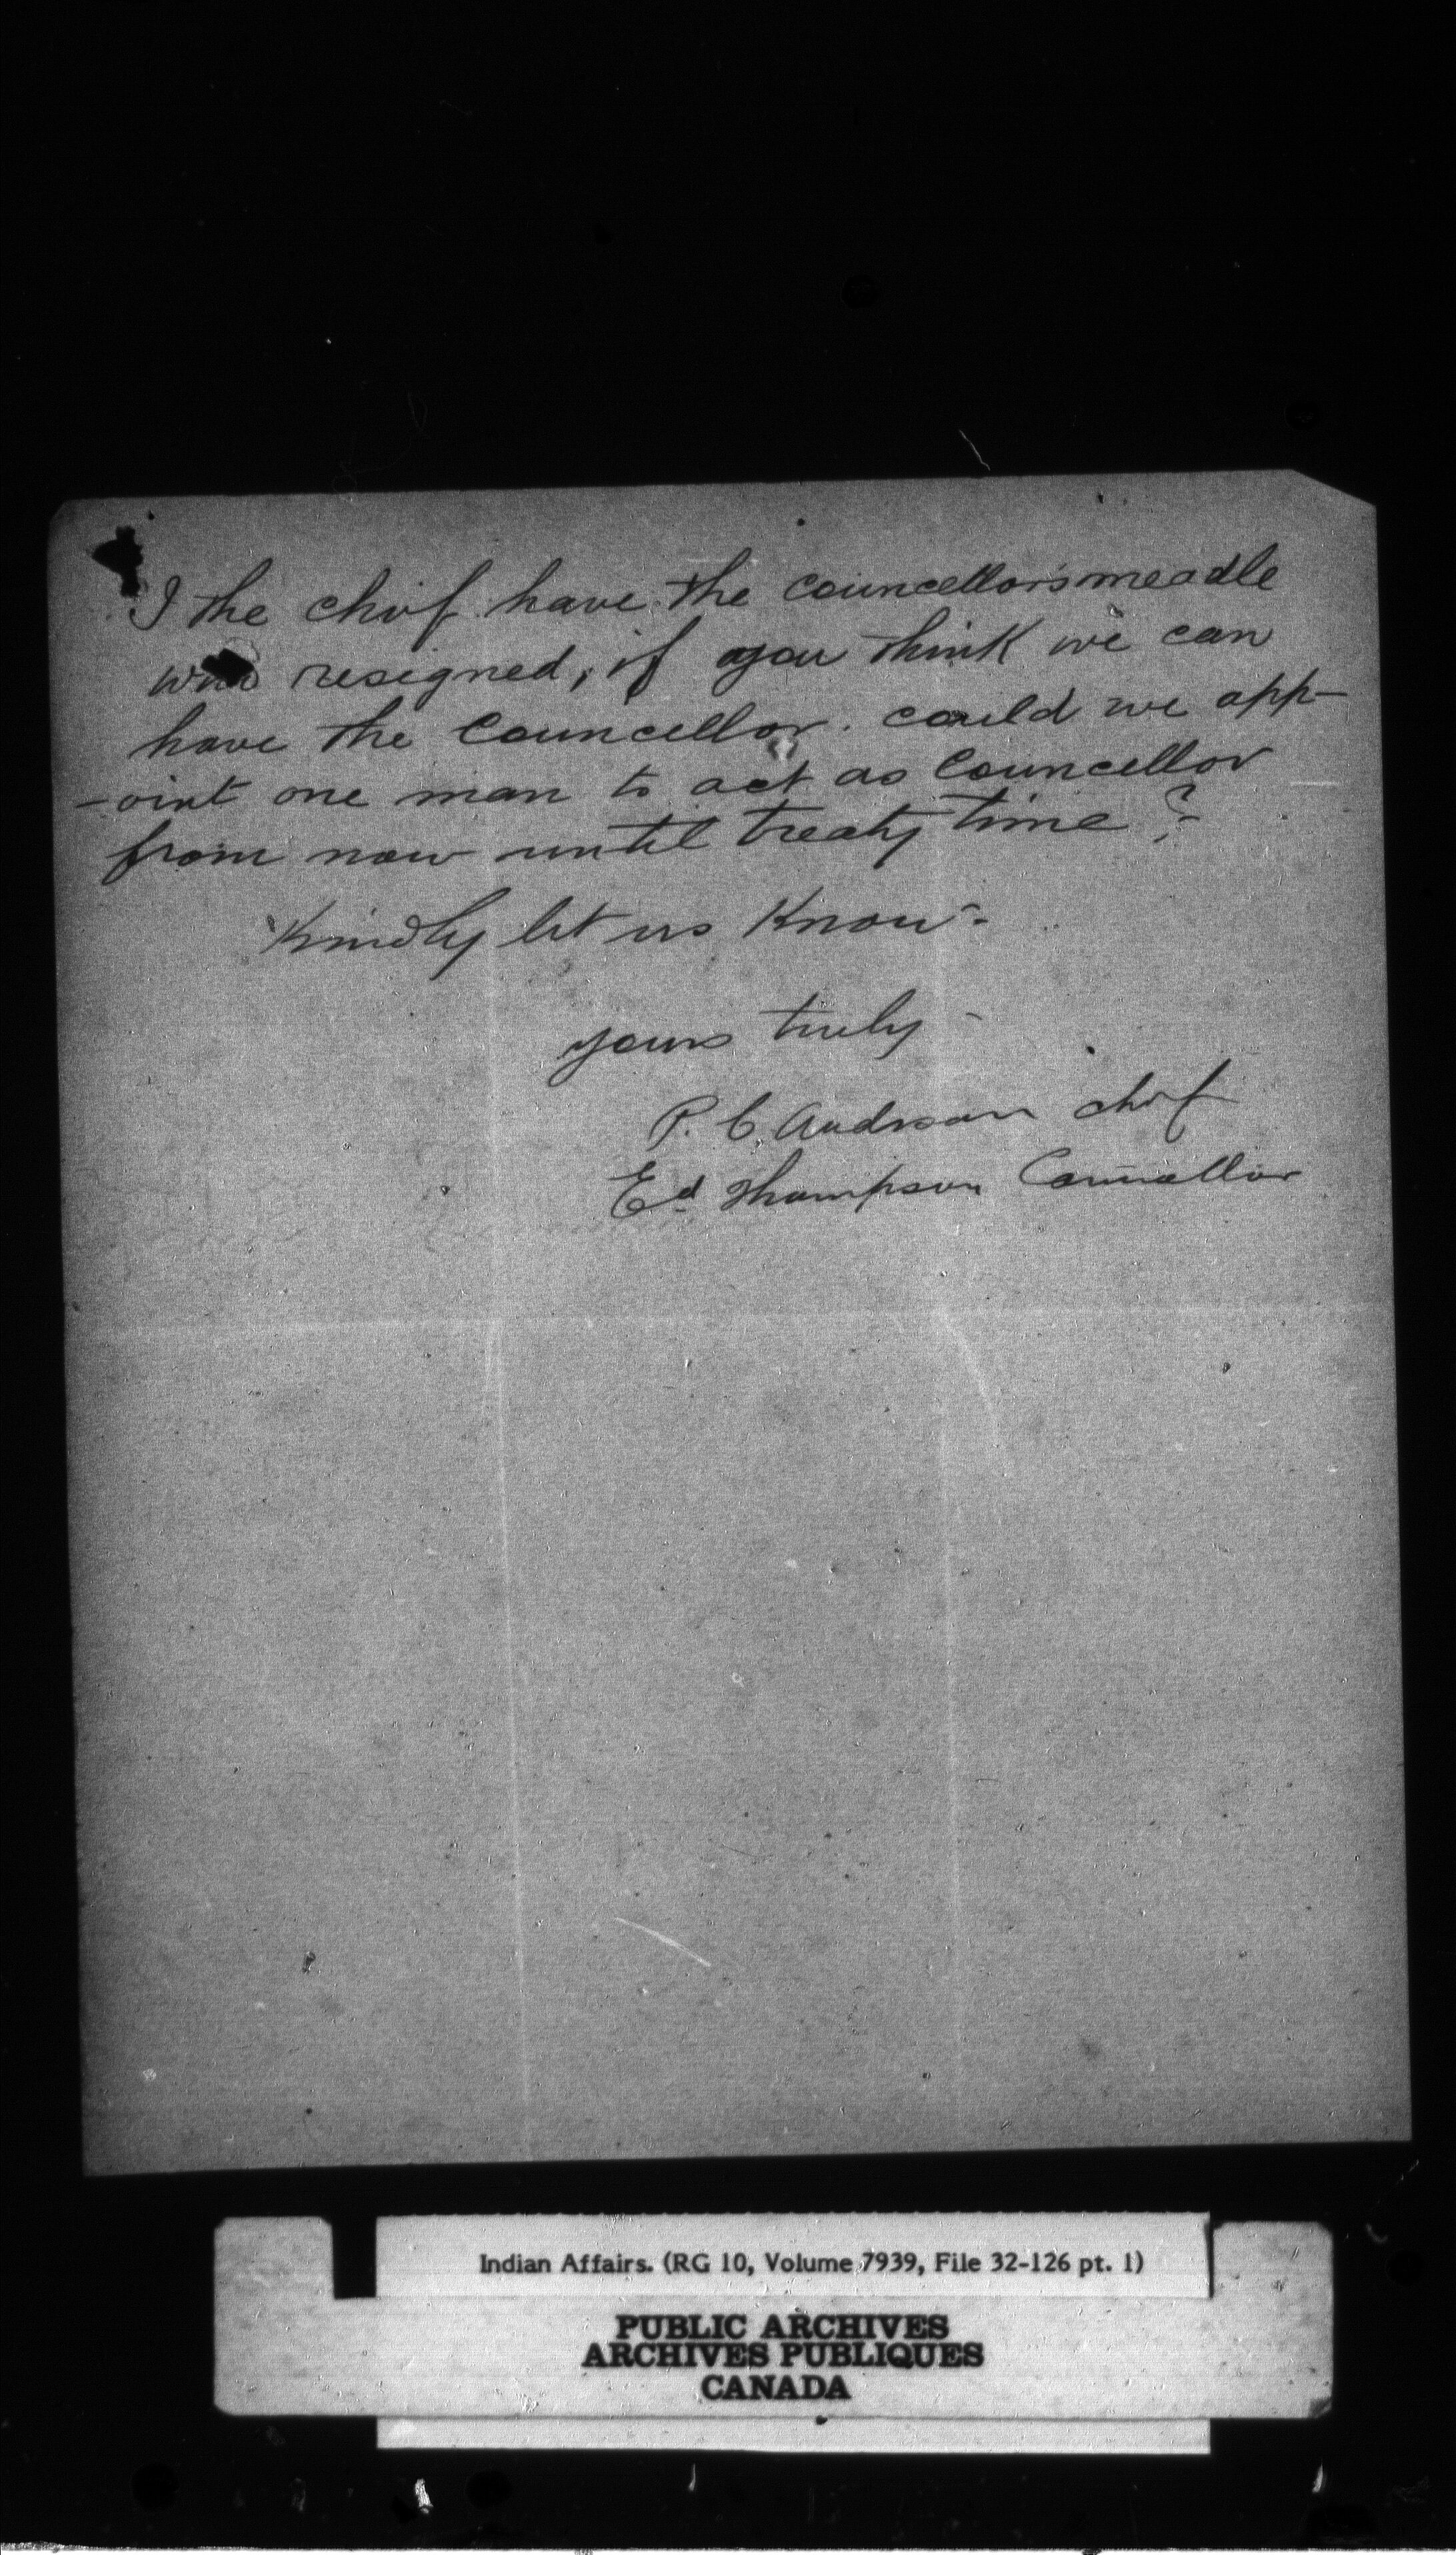 I the chief have the councellors meadle
who resigned, if you think we can
have the Councellor. could we app-
-oint one man to act as Councellor
from now until treaty time?
Kindly let us know-
yours truly-
P. C. Andrson chif
Ed Thompson Councellor
Indian Affairs. (RG 10, Volume 7939, File 32-126 pt. 1)
PUBLIC ARCHIVES
ARCHIVES PUBLIQUES
CANADA